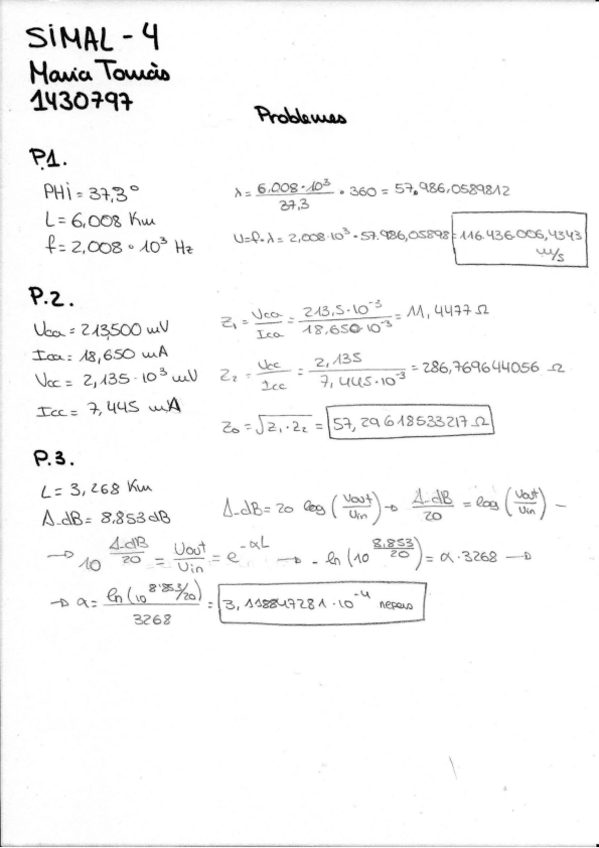 SIMAL - 4
Maria Tomàs
1430797
Problemes
P.1.
PHI = 37,3°
L = 6,008 Km
f = 2,008 · 10³ Hz
λ = 6,008 · 10³ / 37,3 · 360 = 57.986,0589812
U = f · λ = 2,008 · 10³ · 57.986,05898 = 116.436.006,4343 m/s
P.2.
Vca = 213,500 mV
Ica = 18,650 mA
Vcc = 2,135 · 10³ mV
Icc = 7,445 mA
Z₁ = Vca / Ica = 213,5 · 10⁻³ / 18,650 · 10⁻³ = 11,4477 Ω
Z₂ = Vcc / Icc = 2,135 / 7,445 · 10⁻³ = 286,769644056 Ω
Z₀ = √Z₁ · Z₂ = 57,29618533217 Ω
P.3.
L = 3,268 Km
Δ_dB = 8,853 dB
Δ_dB = 20 log (Vout / Vin) → Δ_dB / 20 = log (Vout / Vin) –
→ 10^(Δ_dB / 20) = Vout / Vin = e^(-αL) → - ln (10^(8.853 / 20)) = α · 3268 →
→ α = ln (10^(8'853/20)) / 3268 = 3,118847281 · 10⁻⁴ nepers